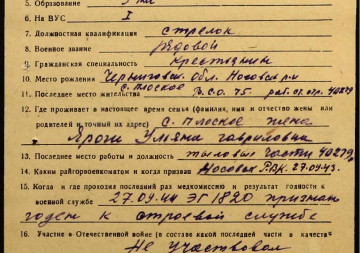 5. Образование 3 кл
6. На ВУС I
7. Должностная квалификация стрелок
8. Военное звание Рядовой
9. Гражданская специальность Крестьянин
10. Место рождения Черниговск. обл. Носовск р-н
с. Плоское
11. Последнее место жительства В.С.О. 75. раб. от. п/я. 40279
12. Где проживает в настоящее время семья (фамилия, имя и отчество жены или
родителей и точный их адрес) с. Плоское жена
Ульяна Гавриловна
13. Последнее место работы и должность тыловые части 40279
14. Каким райгорвоенкоматом и когда призван Носовск. РВК. 27.09.43.
15. Когда и где проходил последний раз медкомиссию и результат годности к
военной службе 27.09.44 ЭГ 1820 признан
годен к строевой службе
16. Участие в Отечественной войне (в составе какой последней части в качеств
Не участвовал